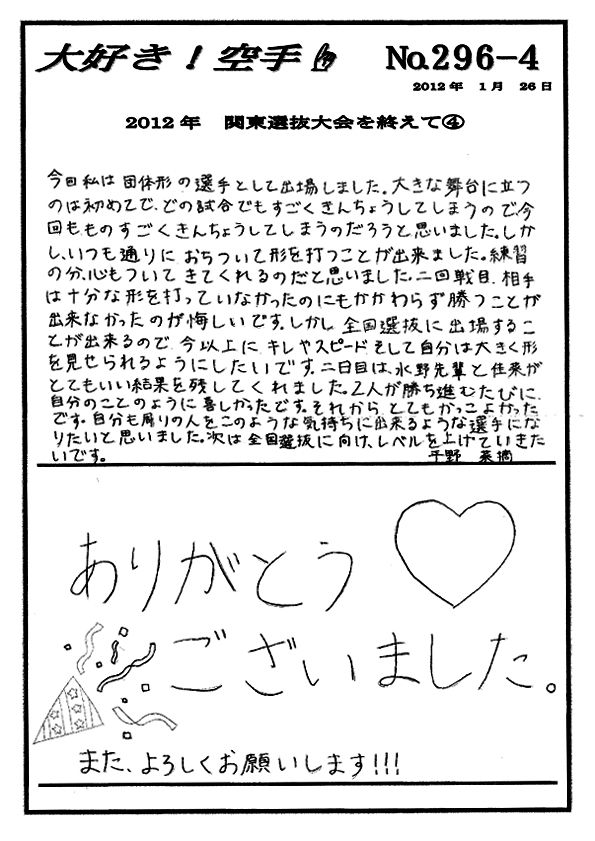 大好き！空手 No.296-4
2012年 1月 26日
2012年 関東選抜大会を終えて④
今回私は団体形の選手として出場しました。大きな舞台に立つ
のは初めてで、どの試合でもすごくきんちょうしてしまうので、今
回もものすごくきんちょうしてしまうのだろうと思いました。しか
し、いつも通りにおちついて形を打つことが出来ました。練習
の分、心もついてきてくれるのだと思いました。二回戦目、相手
は十分な形を打っていなかったのにもかかわらず勝つことが
出来なかったのが悔しいです。しかし、全国選抜に出場するこ
とが出来るので、今以上に、キレやスピードそして自分は大きく形
を見せられるようにしたいです。二日目は、水野先輩と佳來が
とてもいい結果を残してくれました。2人が勝ち進むたびに、
自分のことのように喜しかったです。それから、とてもかっこよかった
です。自分も周りの人をこのような気持ちに出来るような選手にな
りたいと思いました。次は全国選抜に向け、レベルを上げていきた
いです。 千野 菜摘
ありがとう
ございました。
また、よろしくお願いします!!!